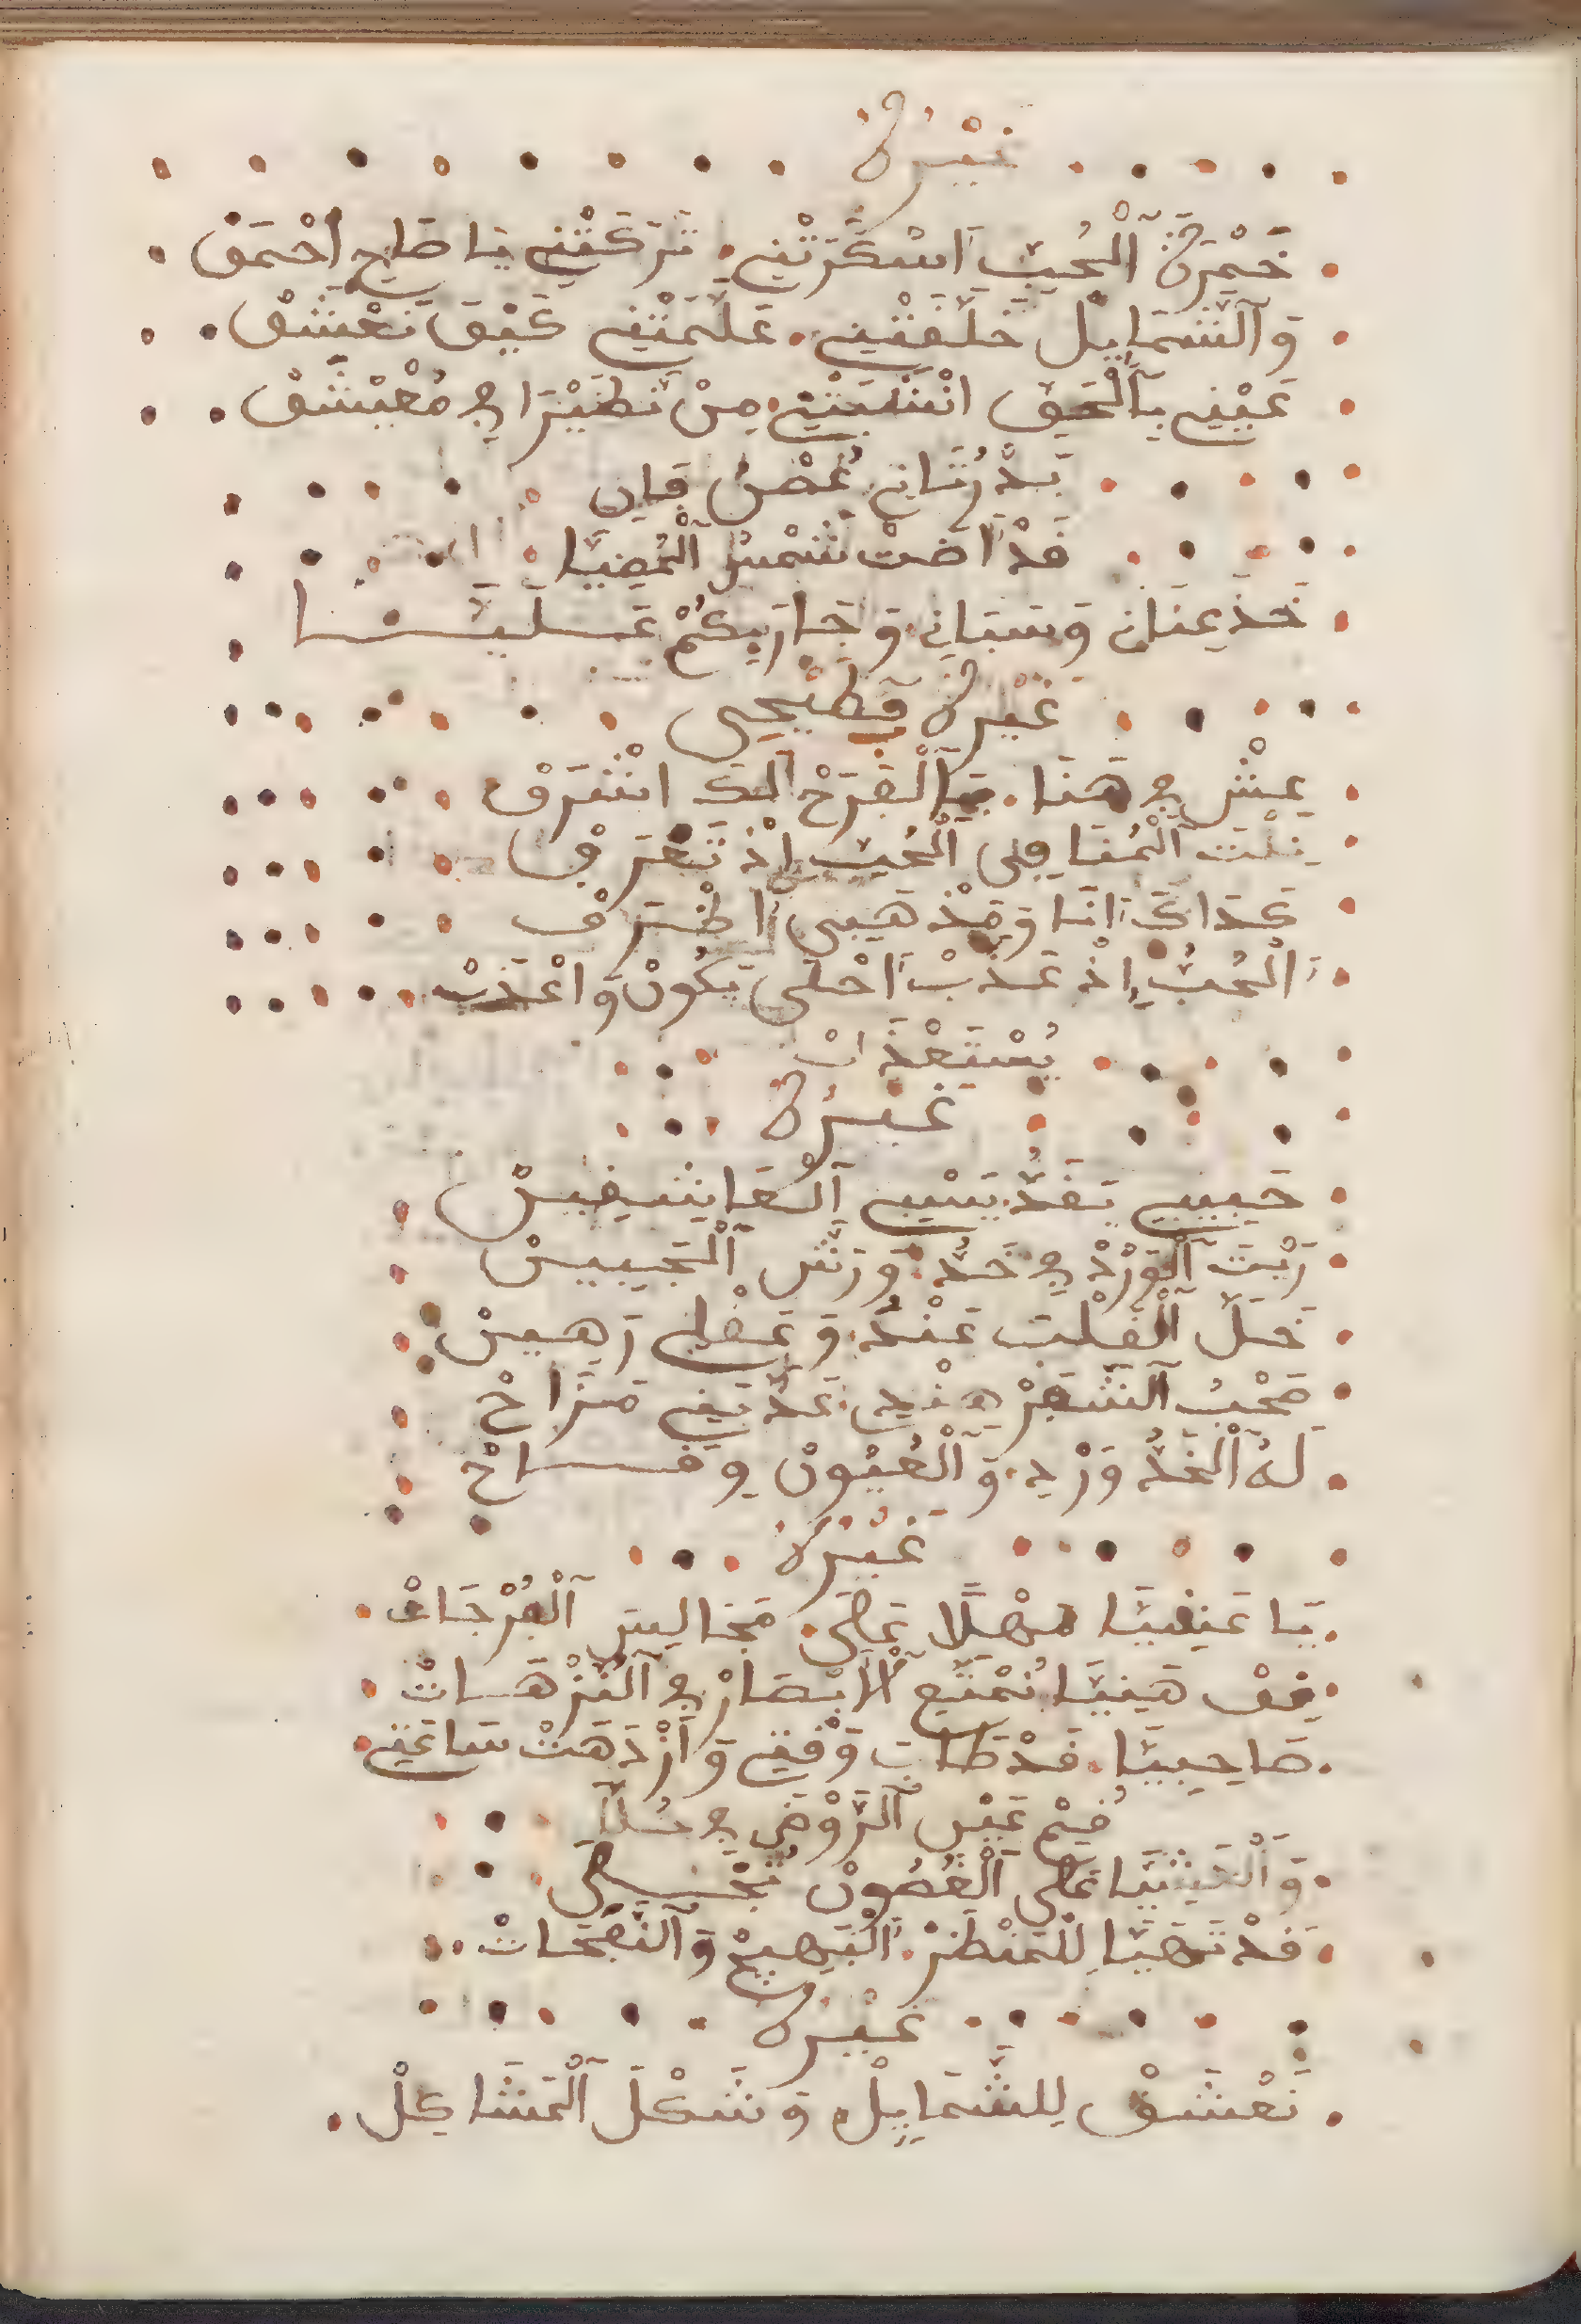 غَيْرُهُ
خَمْرَةُ ٱلْحُبِّ اَسْكَرَتْنِي. تَرَكَتْنِي يَا صَاحِ اَحْمَقْ
وَٱلشَّمَايِلْ خَلَّفَتْنِي. عَلَّمَتْنِي كَيْفَ نَعْشَقْ
عَيْنِي بِٱلْحَقِّ انْسَبَتْنِي. مِنْ نَظَيْرَا فِي مُعَيْشَقْ
بَدْرُ ثَانِي. غُصْنُ فَانِ
قَدْ اَضَتْ شَمْسُ ٱلْمُضِيَّا
خَذْ عِنَانِ وَسَبَانِي. وَجَارَبِكُمْ عَلَيْنَا
غَيْرُهُ فَطَيْجِي
عِشْ فِي هَنَا. بِٱلْفَرَحْ لَكْ اشْتَرَقْ
نِلْتَ ٱلْمُنَا فِي ٱلْحُبِّ اِذْ تَعْتَرَفْ
كَذَاكَ اَنَا وَمَذْهَبِي
اَلْحُبُّ اِذْ عَذَّبْ اَحْلَى يَكُونْ وَاعْذَبْ
يُسْتَعْذَبْ
غَيْرُهُ
حَبِيبِي بِقَدُّ يَسْبِي ٱلْعَاشِقِينْ
رَيْتَ ٱلْوَرْدْ فِي خَدُّ. وَرَشَّ ٱلْجَبِينْ
خَلَّ ٱلْقَلْبَ عَنْدُ. وَعَقْلِي رَهِينْ
صَحْبُ ٱلشَّفَرْ هِنْدِي. عَذَّبَنِي مَزَّاحْ
لَهُ ٱلْخَدُّ وَرْدِ. وَٱلْعُيُونْ وِقَاحْ
غَيْرُهُ
يَا عَشِيَّا مَهْلًا عَلَى. مَجَالِسِ ٱلْفُرْجَاتْ
قِفْ هَنِيَّا نُمَتَّعِ ٱلْأَبْصَارْ فِي ٱلنُّزْهَاتْ
صَاحِبِيَّا. قَدْ طَابَ وَقْتِي وَٱزْدَهَتْ سَاعَتِي
قُمْ تَرَ عَيْنِ ٱلرَّوْضِ فِي حُلَّا
وَٱلْعَشِيَّا عَلَى ٱلْغُصُونْ تُجْلَى
قَدْ تَهَيَّا لِلْمَنْظَرْ. اَلْبَهِيجْ وَٱلنَّفْحَاتْ
غَيْرُهُ
نَعْشَقْ لِلشَّمَايِلْ وَشَكْلَ ٱلْمَشَاكِلْ